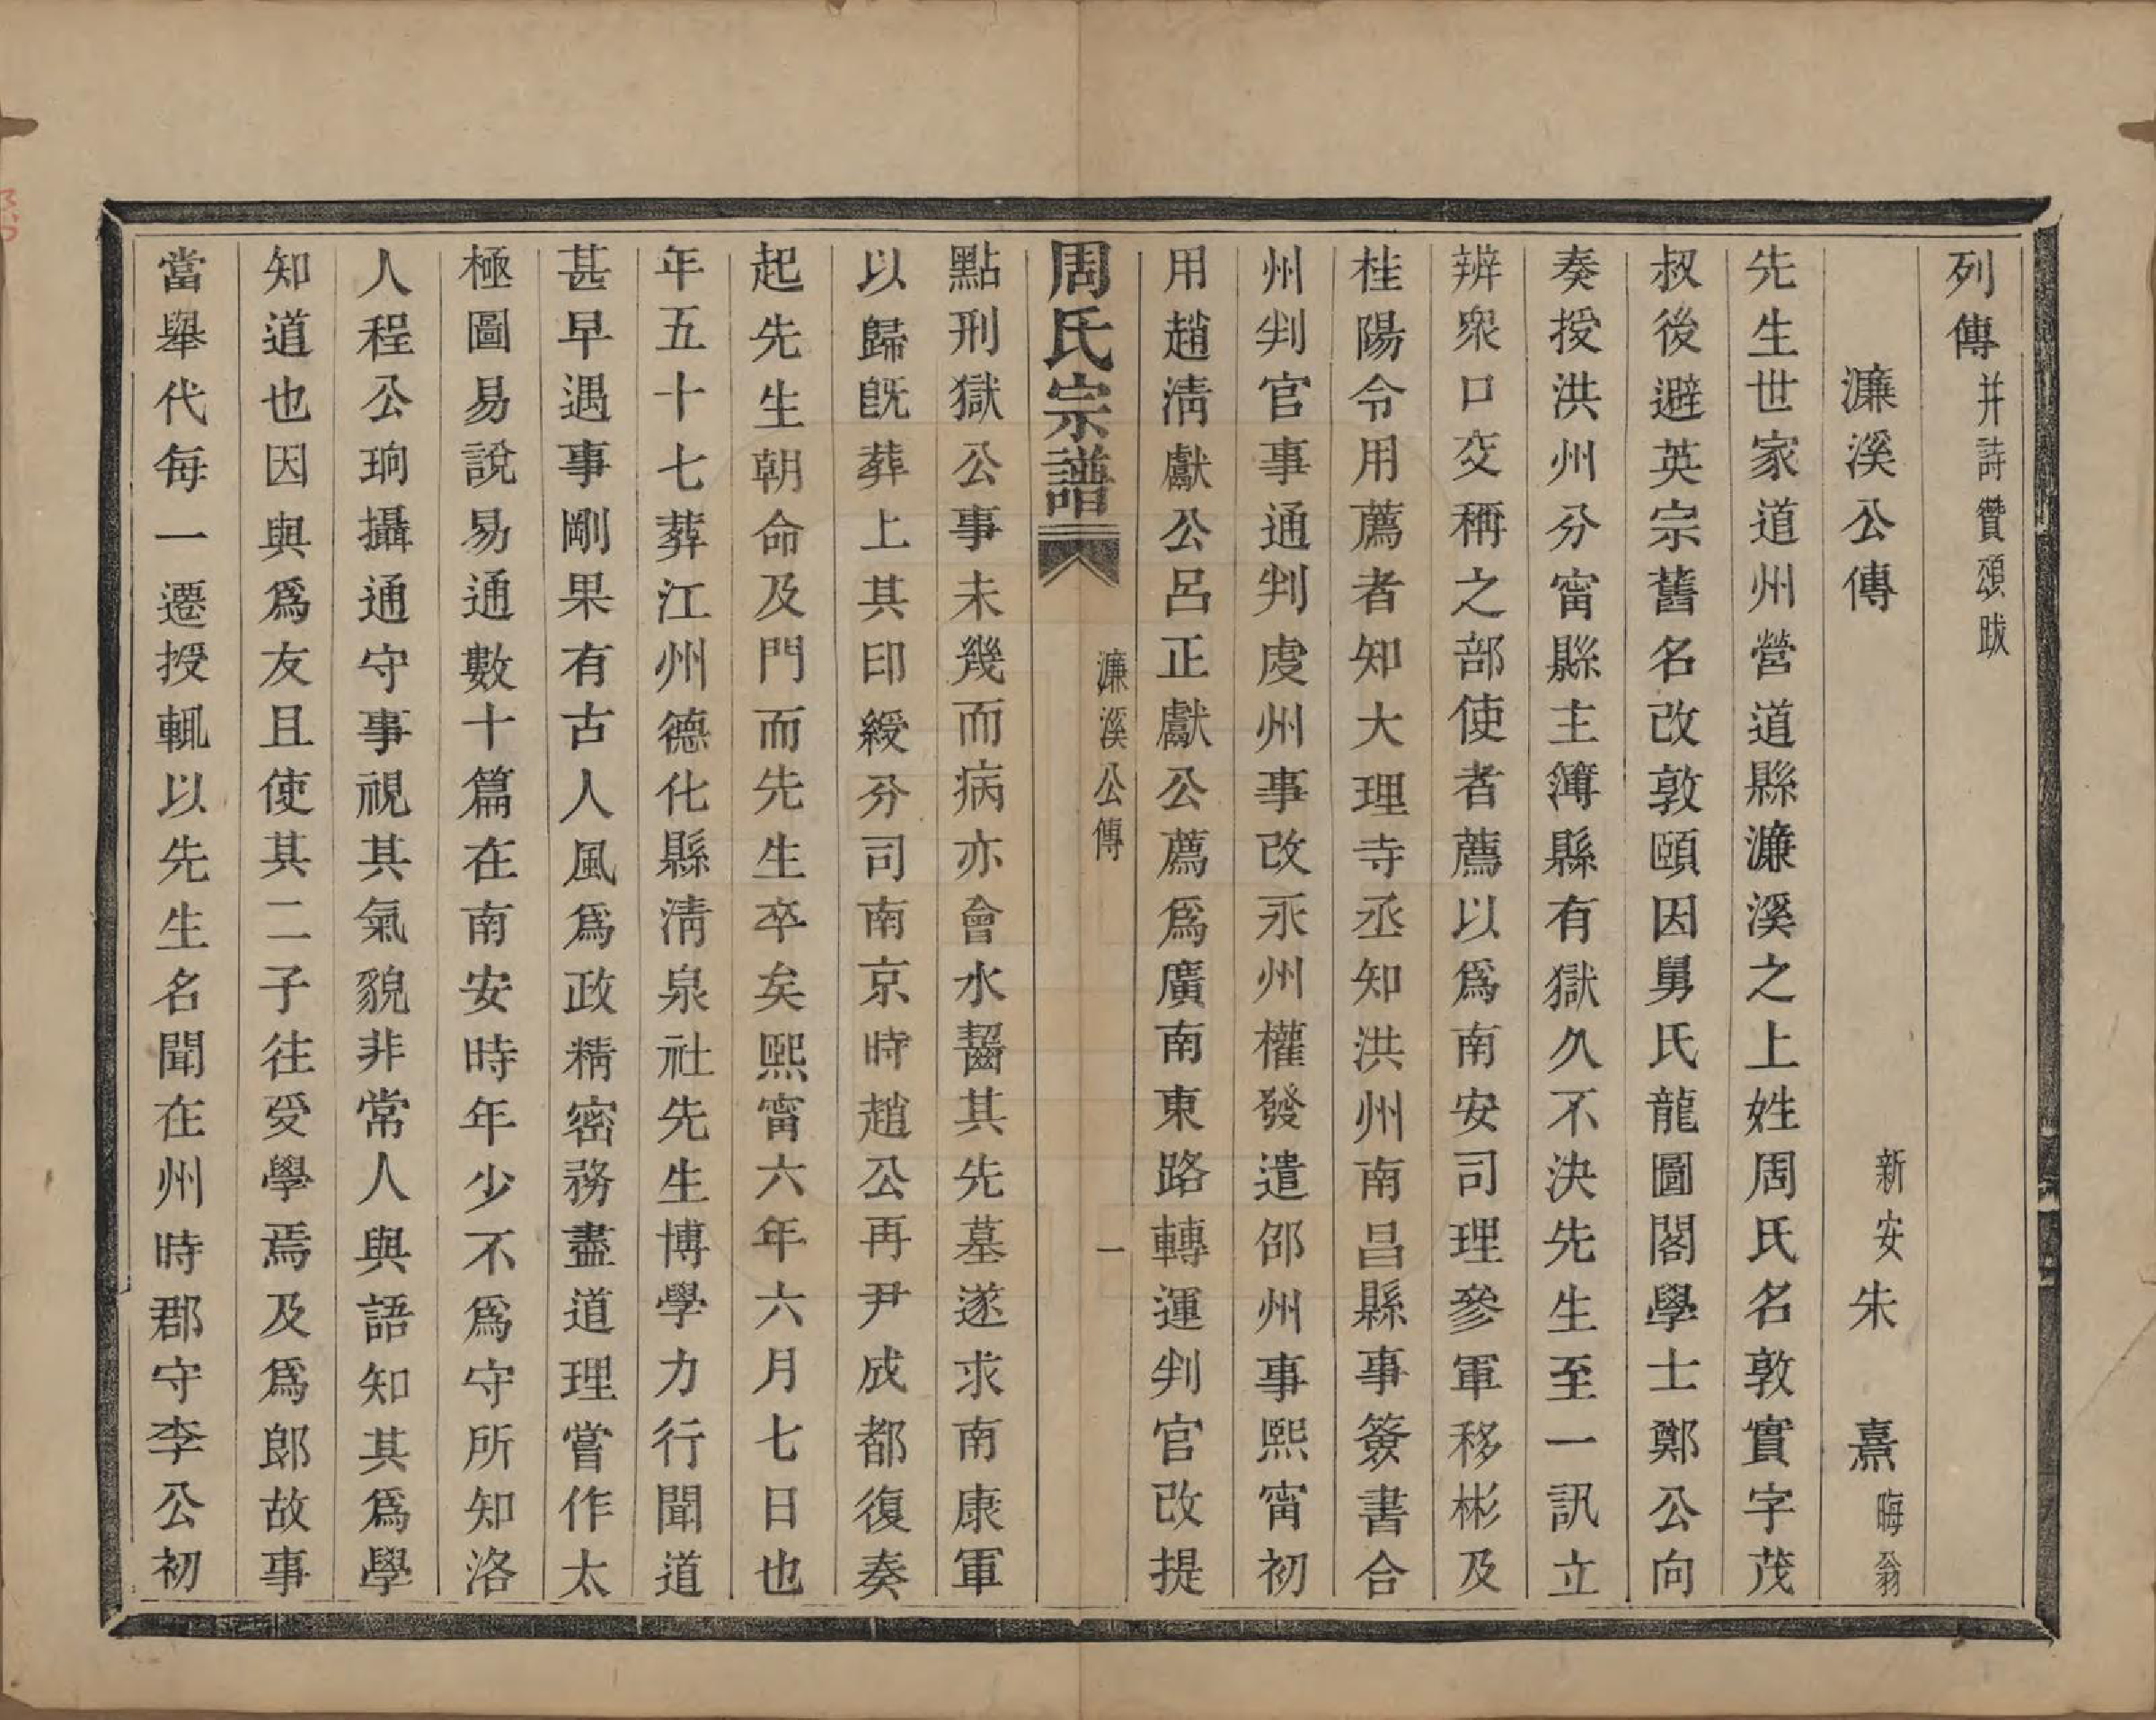 列傳并詩贊頌跋
濂溪公傳
新安朱熹晦翁
先生世家道州營道縣濂溪之上姓周氏名敦實字茂
叔後避英宗舊名改敦頤因舅氏龍圖閣學士鄭公向
奏授洪州分甯縣主簿縣有獄久不決先生至一訊立
辨衆口交稱之部使者薦以爲南安司理參軍移彬及
桂陽令用薦者知大理寺丞知洪州南昌縣事簽書合
州判官事通判虔州事改永州權發遣邵州事熙甯初
用趙淸獻公呂正獻公薦爲廣南東路轉運判官改提
周氏宗譜 濂溪公傳 一
點刑獄公事未幾而病亦會水齧其先墓遂求南康軍
以歸旣葬上其印綬分司南京時趙公再尹成都復奏
起先生朝命及門而先生卒矣熙甯六年六月七日也
年五十七葬江州德化縣淸泉社先生博學力行聞道
甚早遇事剛果有古人風爲政精密務盡道理嘗作太
極圖易說易通數十篇在南安時年少不爲守所知洛
人程公珦攝通守事視其氣貌非常人與語知其爲學
知道也因與爲友且使其二子往受學焉及爲郎故事
當舉代每一遷授輒以先生名聞在州時郡守李公初